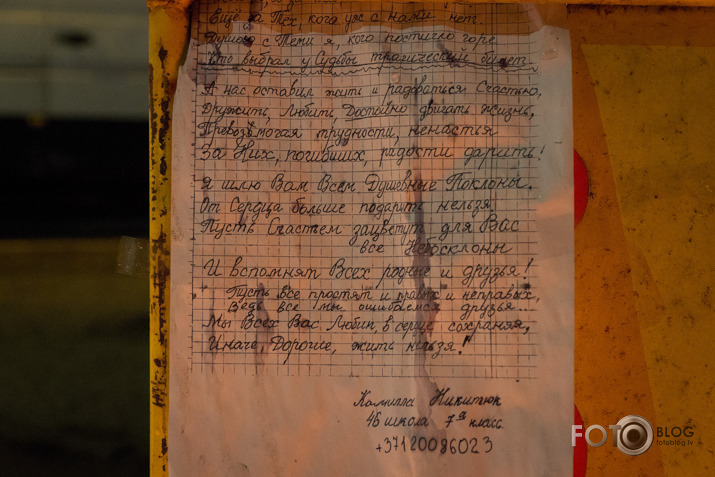 Ещё за Тех, кого уж с нами нет.
Душою с Теми я, кого постигло горе
Кто выбрал у Судьбы трагический билет.
А нас оставил жить и радоваться Счастью,
Дружить, Любить, Достойно двигать жизнь,
Превозмогая трудности, ненастья
За Них, погибших, радости дарить!
Я шлю Вам Всем Душевные Поклоны.
От Сердца больше подарить нельзя
Пусть Счастьем зацветут для Вас
все Небосклоны
И вспомнят Всех родные и друзья!
Пусть все простят и правых и неправых,
Ведь все мы ошибаемся друзья...
Мы Всех Вас Любим, в сердце сохраняя,
Иначе, Дорогие, жить нельзя!
Камилла Никитюк
46 школа 7а класс.
+37120086023
FOTO BLOG
fotoblog.lv